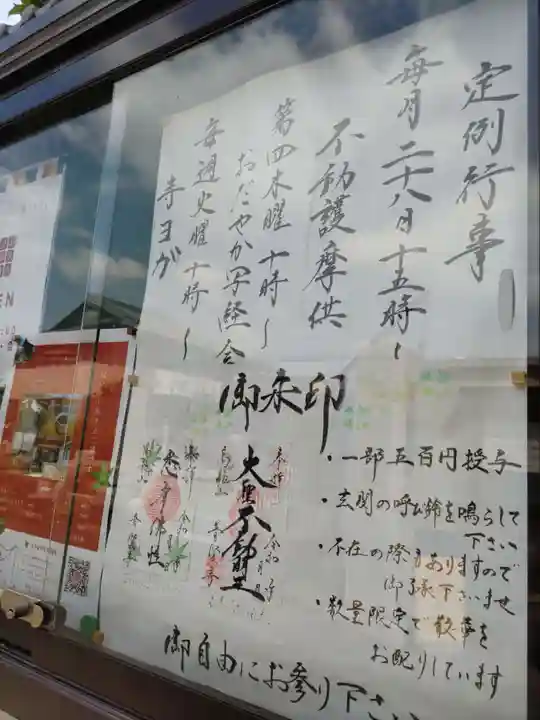 定例行事
毎月二十八日十五時〜
不動護摩供
第四木曜十時〜
おだやか写経会
毎週火曜十時〜
寺ヨガ
御朱印
・一部五百円授与
・玄関の呼び鈴を鳴らして
下さい
・不在の際もありますので
御了承下さいませ
・数量限定で散華を
お配りしています
大聖不動明王
御自由にお参り下さい
EN